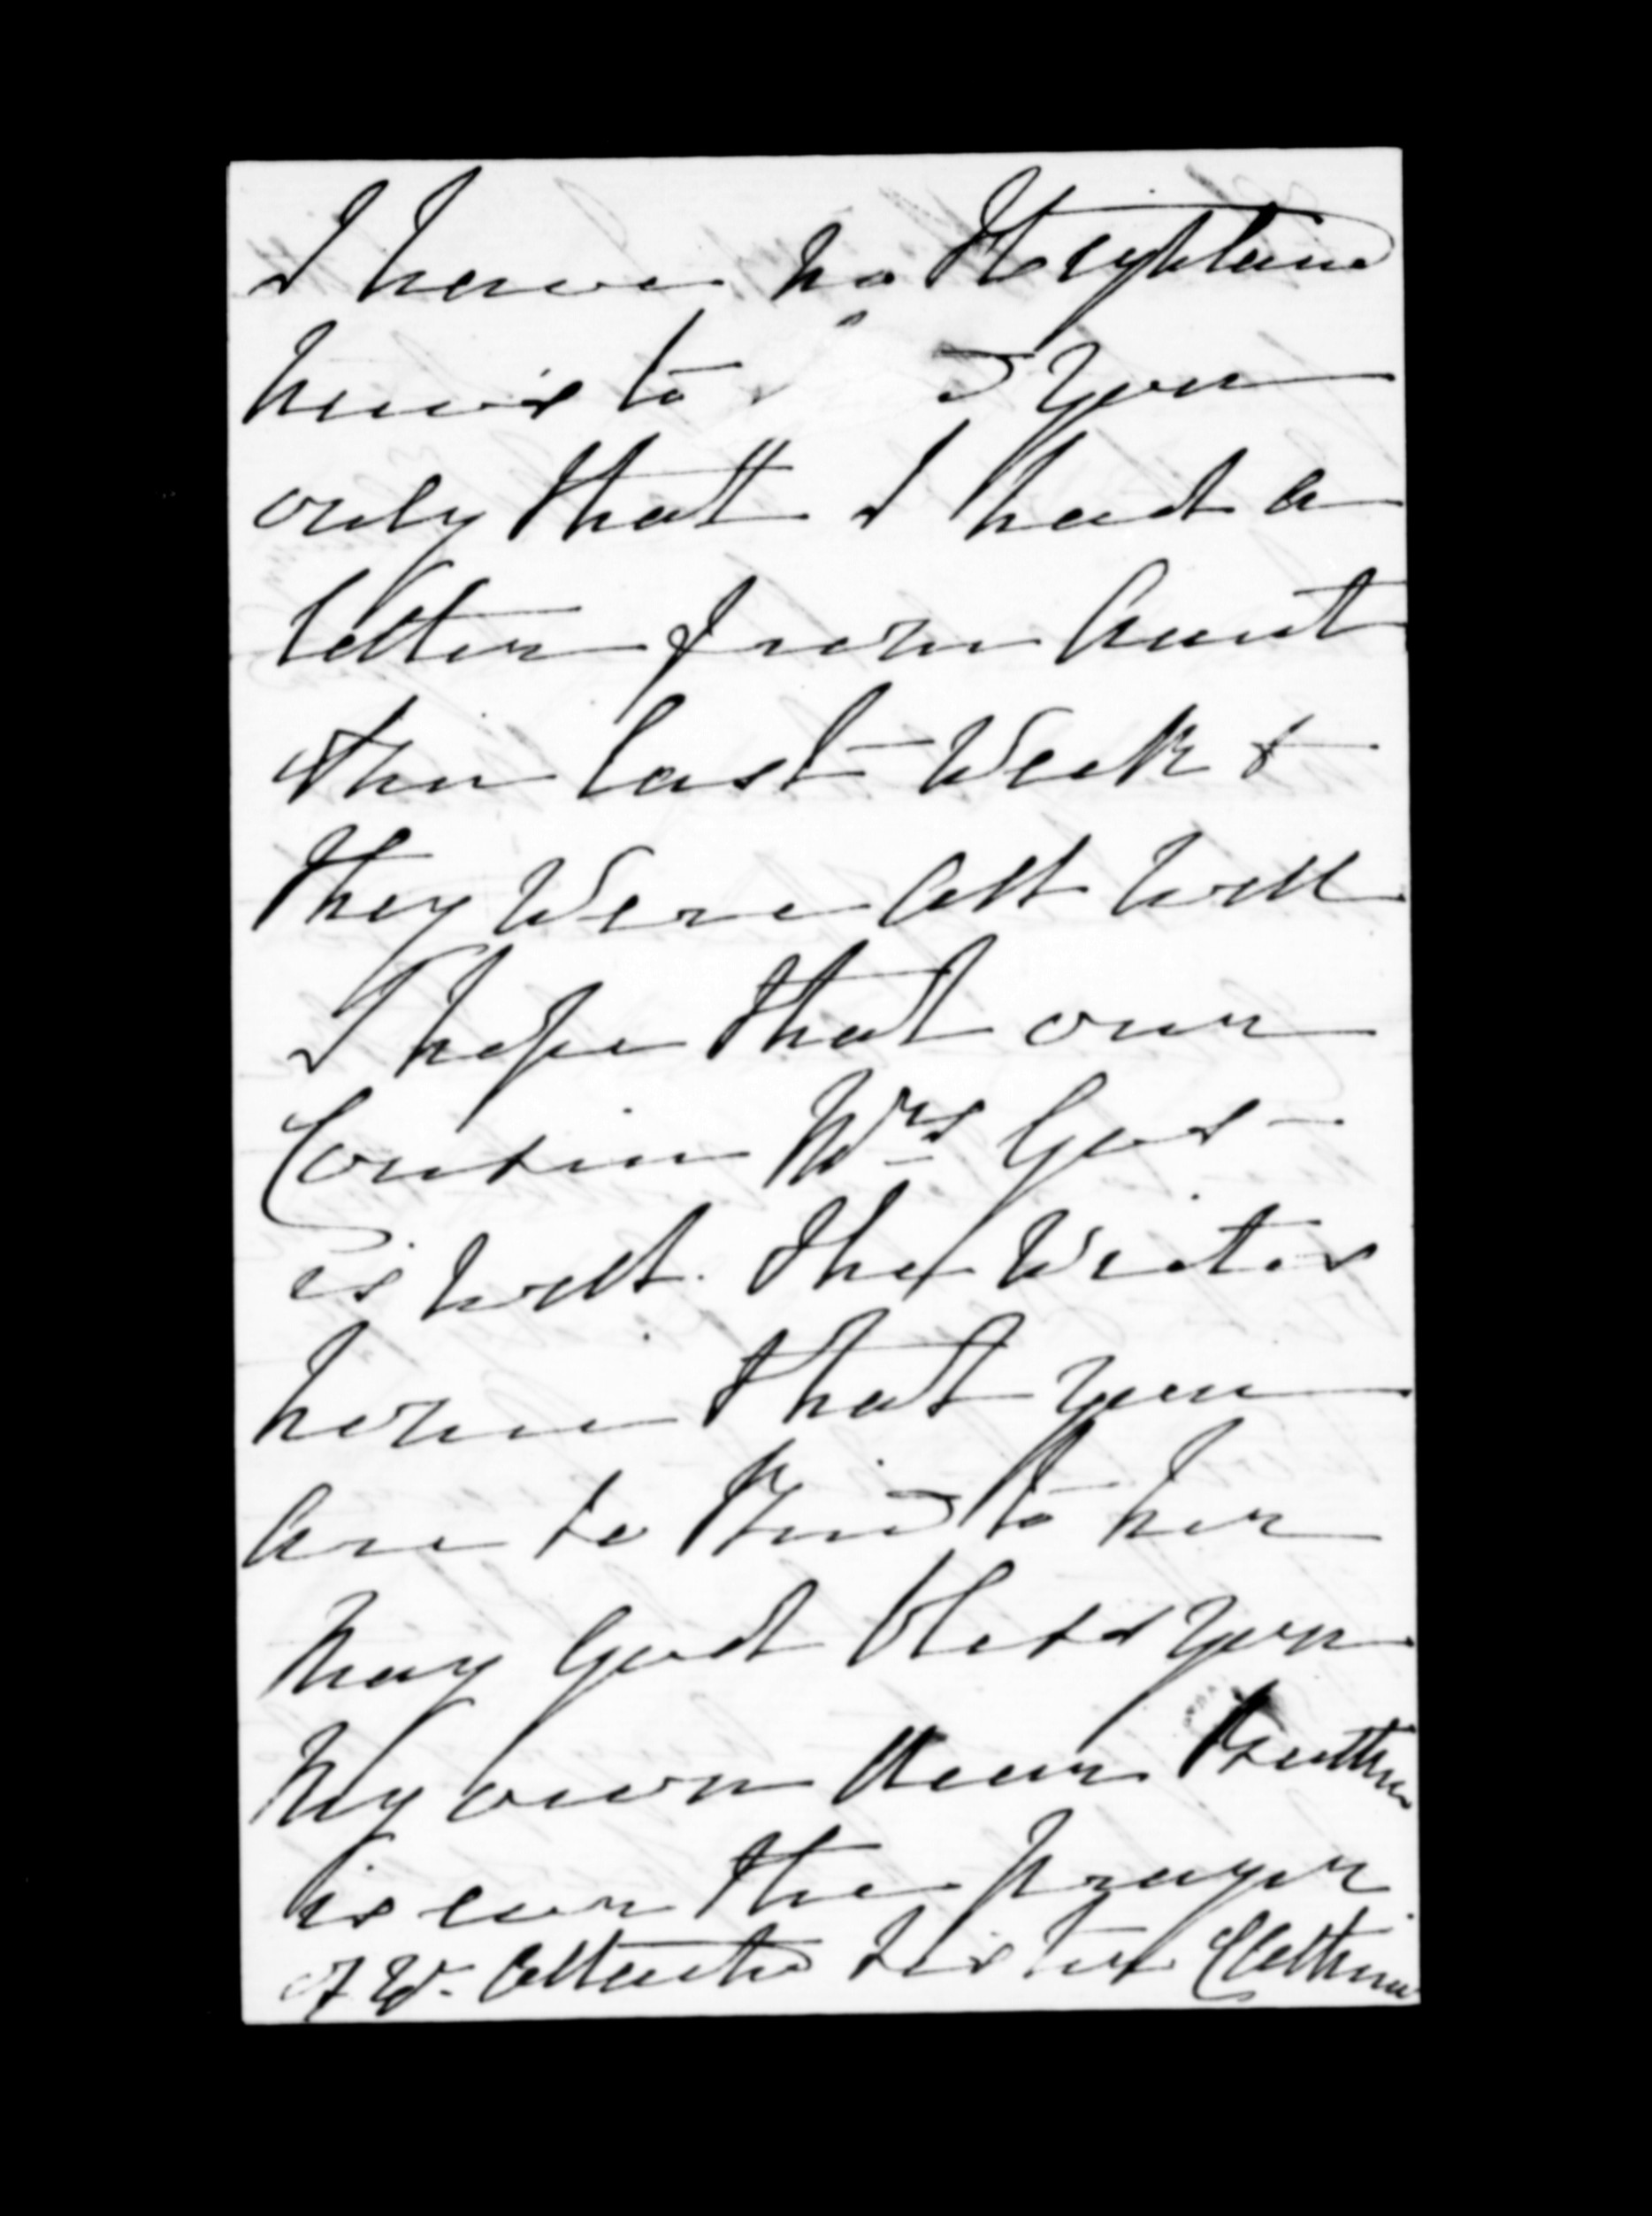 I have no
news to you
only that I had a
letter from Aunt
this last Week &
they Were all well
I hope that our
Cousin Mrs Gos-
is well. She Writes
home that you
are so Kind to her
May God bless you
My own dear Brother
is ever the prayer
of yr. attached Sister Catherine